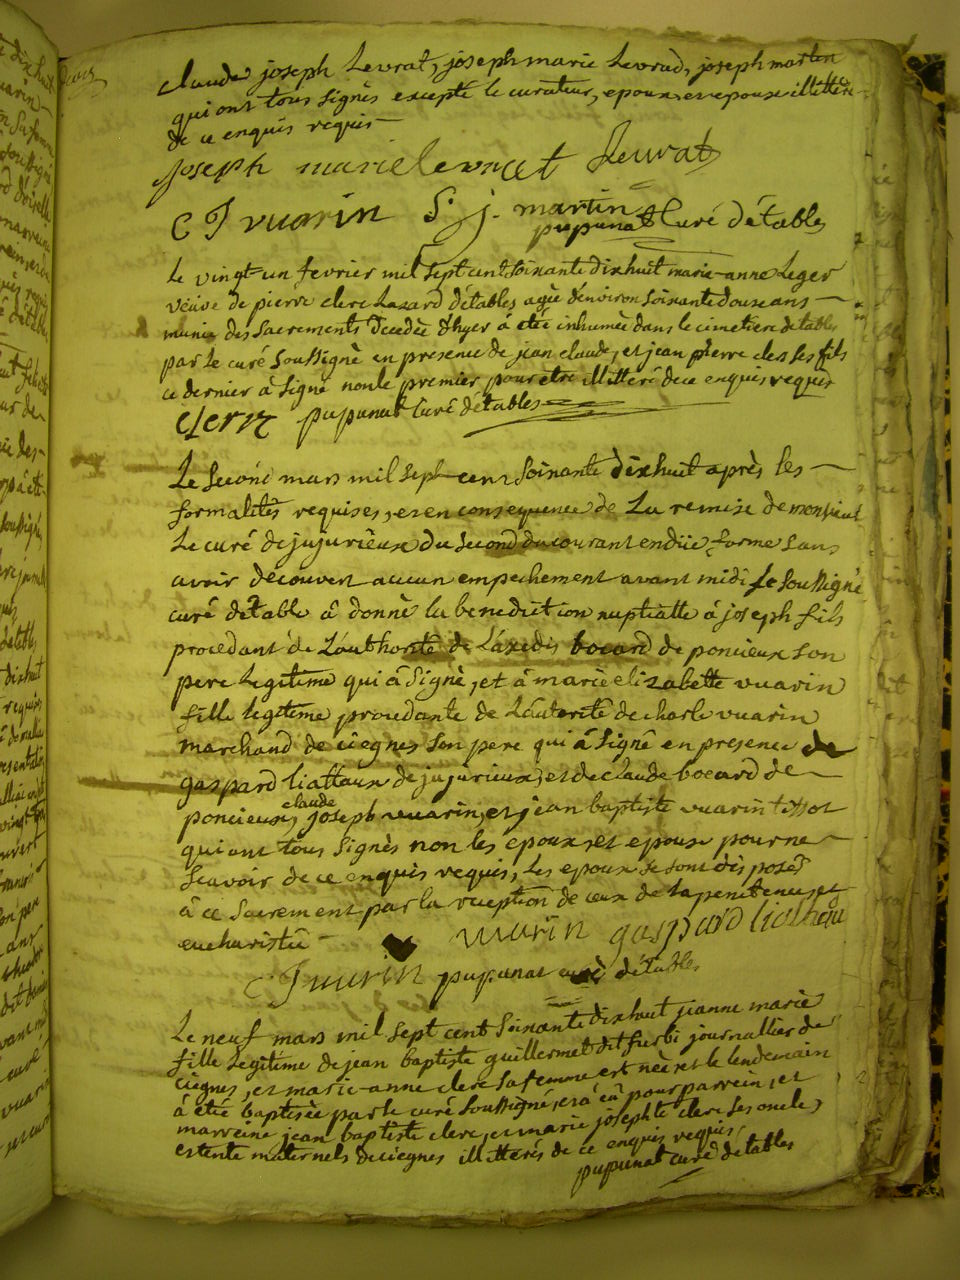 claude joseph Levrat, joseph marie Levrad, joseph martin
qui ont tous signés excepté le curateur, epoux, et epouse illitérés
de ce enquis requis
joseph marie levrat Levrat
C J vuarin S. j. martin
pupunat Curé détables
Le vingt un fevrier mil sept cent soixante dixhuit marie-anne Leger
veuve de pierre clerc Lazard détables agée denviron soixante douze ans
munie des sacrements décedée dhyer á etée inhumée dans le cimetiere detables
par le curé soussigné en presence de jean claude, et jean pierre clerc ses fils
ce dernier á signé non le premier pour etre illitéré de ce enquis requis
Clerc pupunat Curé détables
Le second mars mil sept cent soixante dixhuit après les
formalités requises, et en consequence de La remise de monsieur
Le curé de jujurieux du second du courant en düe forme sans
avoir découvert aucun empechement avant midi Le soussigné
curé détable á donné la benediction nuptialle á joseph fils
procedant de Lauthorité de bocard de poncieux son
pere Legitime qui á signé, et á marie elizabette vuarin
fille legitime procedante de Lautorité de charle vuarin
marchand de ciegnes son pere qui á signé en presence de
gaspard liattaux de jujurieux, et de claude bocard de
poncieux, claude joseph vuarin, et jean baptiste vuarin tissot
qui ont tous signés non les epoux, et epouse pour ne
scavoir de ce enquis requis, Les epoux se sont disposés
á ce sacrement par la reception de ceux de la penitence, et
eucharistie
vuarin gaspard
C J vuarin pupunat curé détables
Le neuf mars mil sept cent soixante dixhuit jeanne marie
fille Legitime de jean baptiste guillermet dit furbi journallier de
ciegnes, et marie-anne clerc sa femme est née, et le lendemain
á etée baptisée par le curé soussigné, et á eü pour parrein, et
marreine jean baptiste clerc, et marie josephte clerc ses oncle,
et tente maternels de ciegnes illitérés de ce enquis requis
pupunat curé détables